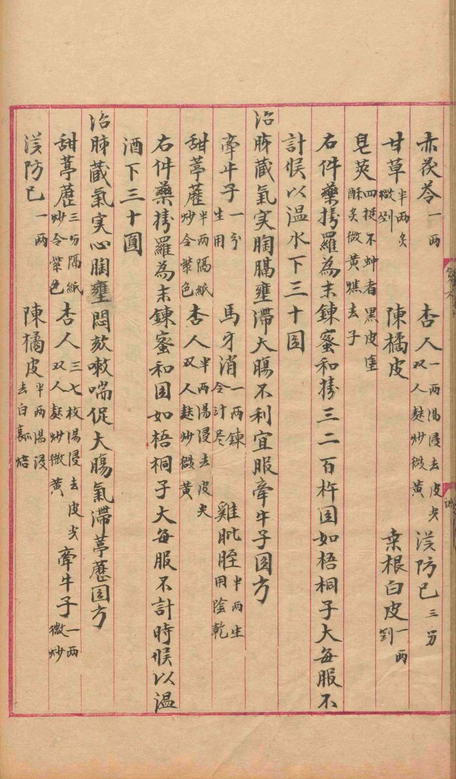 赤茯苓一兩　杏人一兩湯浸去皮尖双人麸炒微黄　漢防己三分
甘草半兩炙微剉　陳橘皮　桒根白皮一兩剉
皂荚四挺不蚛者黒皮塗酥炙微黄燋去子
右件藥擣羅為末鍊蜜和擣三二百杵圎如梧桐子大每服不
計候以温水下三十圎
治肺藏氣実胸膈壅滞大膓不利宜服牽牛子圎方
牽牛子一分生用　馬牙消一兩鍊令汁尽　雞肶胵半兩生用陰乾
甜葶藶半兩隔紙炒令紫色　杏人半兩湯浸去皮尖双人麸炒微黄
右件藥擣羅為末鍊蜜和圎如梧桐子大每服不計時候以温
酒下三十圎
治肺藏氣実心胸壅悶欬嗽喘促大膓氣滞葶藶圎方
甜葶藶三分隔紙炒令紫色　杏人三七枚湯浸去皮尖双人麸炒微黄　牽牛子一兩微炒
漢防己一兩　陳橘皮半兩湯浸去白瓤焙